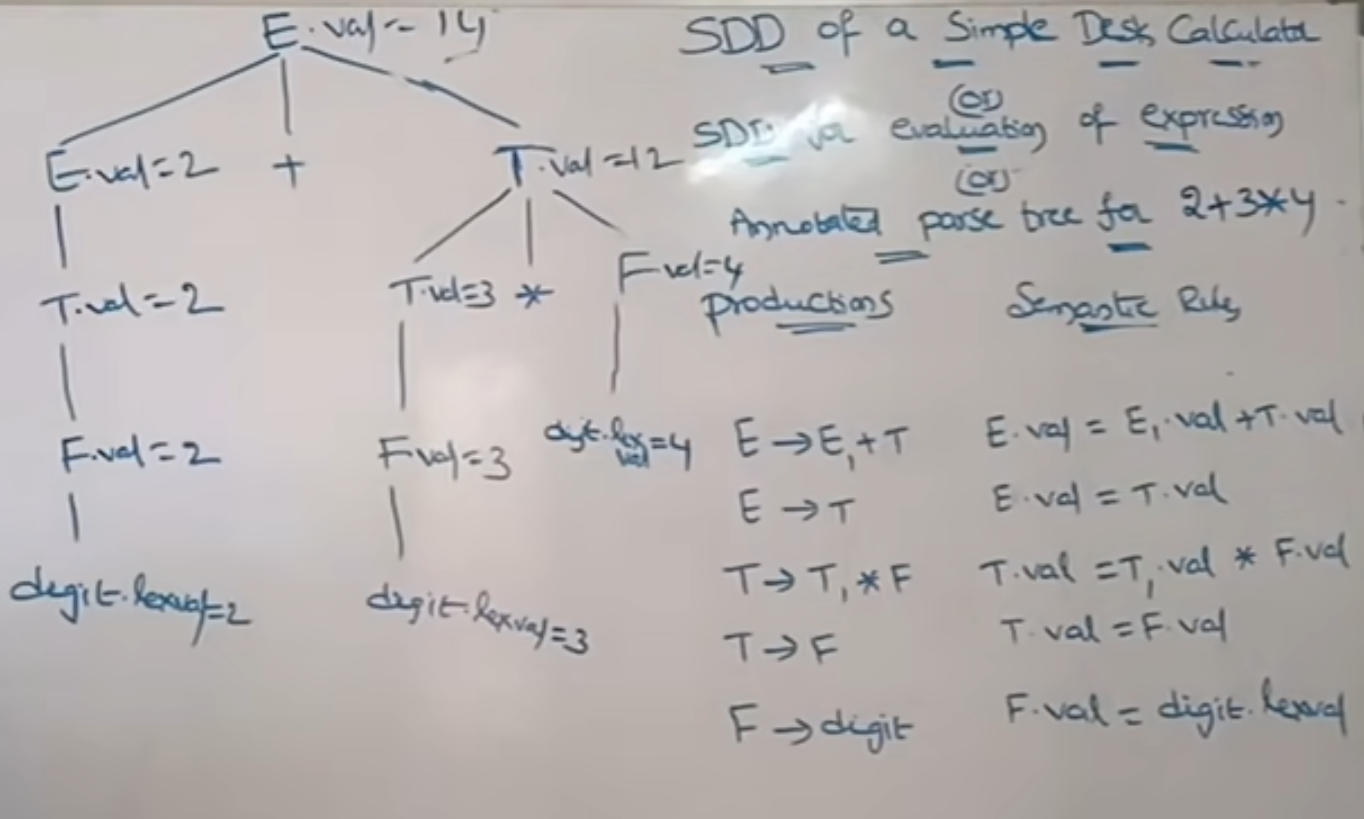 E.val = 14
E.val = 2 + T.val = 12
T.val = 2
T.val = 3 * F.val = 4
F.val = 2
F.val = 3
digit.lexval = 4
digit.lexval = 2
digit.lexval = 3
SDD of a Simple Desk Calculator
(or)
SDD for evaluation of expression
(or)
Annotated parse tree for 2+3*4
Productions Semantic Rules
E → E₁ + T E.val = E₁.val + T.val
E → T E.val = T.val
T → T₁ * F T.val = T₁.val * F.val
T → F T.val = F.val
F → digit F.val = digit.lexval